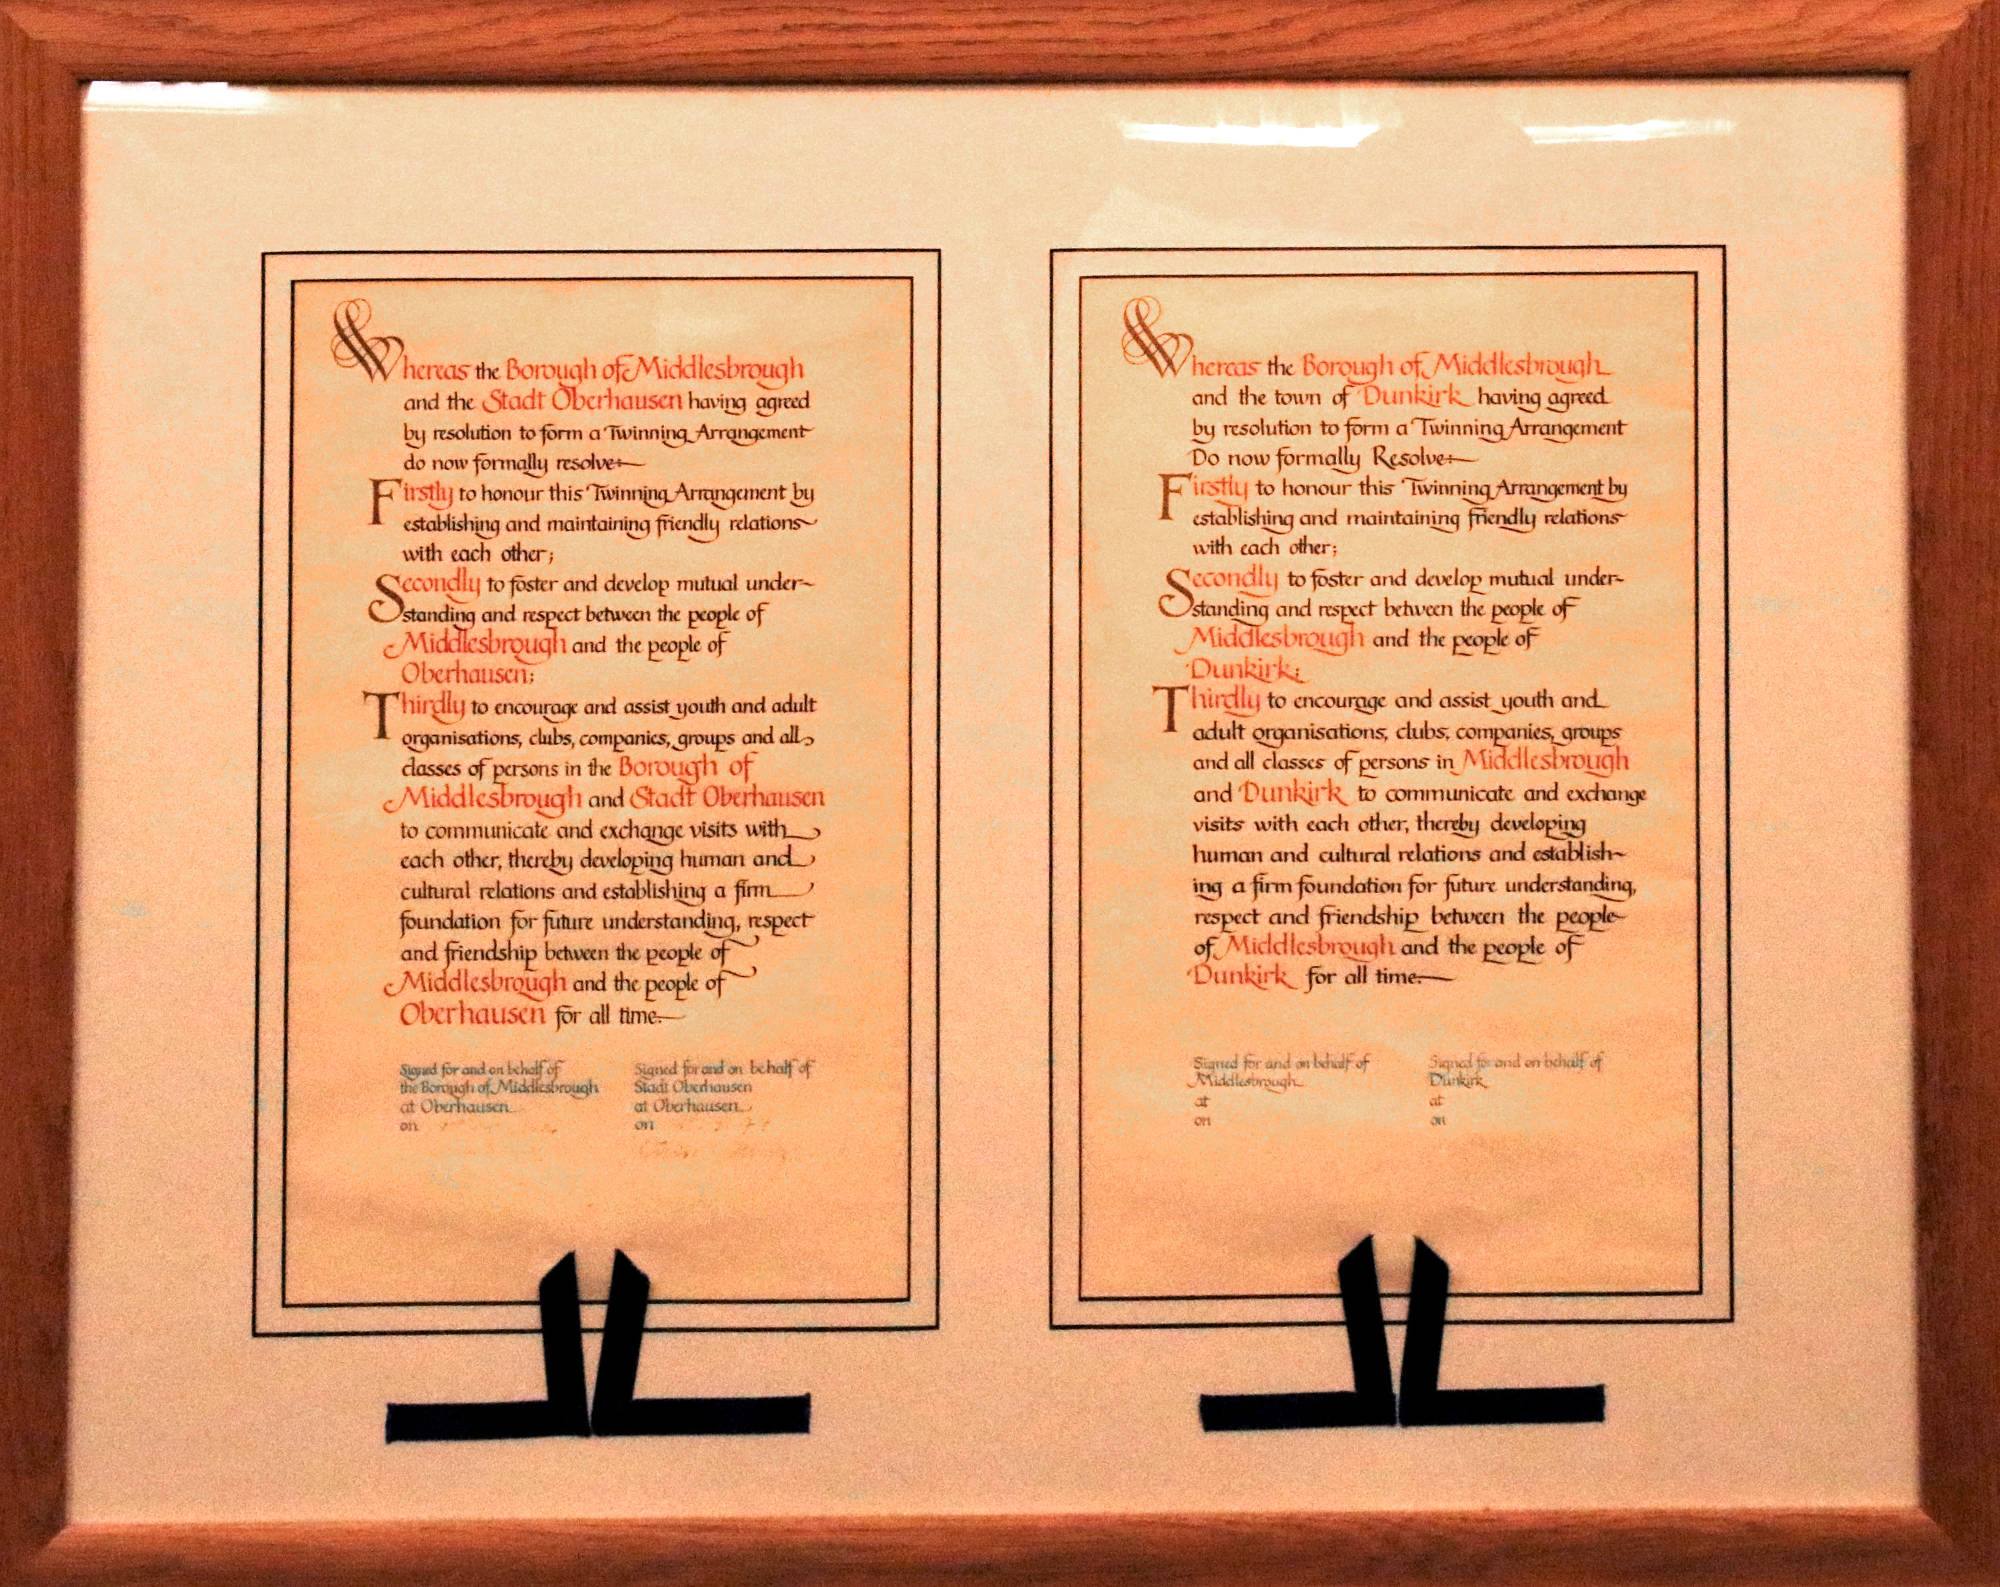 Whereas the Borough of Middlesbrough
and the Stadt Oberhausen having agreed
by resolution to form a Twinning Arrangement
do now formally resolve:—
Firstly to honour this Twinning Arrangement by
establishing and maintaining friendly relations
with each other;
Secondly to foster and develop mutual under-
standing and respect between the people of
Middlesbrough and the people of
Oberhausen;
Thirdly to encourage and assist youth and adult
organisations, clubs, companies, groups and all
classes of persons in the Borough of
Middlesbrough and Stadt Oberhausen
to communicate and exchange visits with
each other, thereby developing human and
cultural relations and establishing a firm
foundation for future understanding, respect
and friendship between the people of
Middlesbrough and the people of
Oberhausen for all time.—
Signed for and on behalf of
the Borough of Middlesbrough
at Oberhausen
on
Signed for and on behalf of
Stadt Oberhausen
at Oberhausen
on
Whereas the Borough of Middlesbrough
and the town of Dunkirk having agreed
by resolution to form a Twinning Arrangement
Do now formally Resolve:—
Firstly to honour this Twinning Arrangement by
establishing and maintaining friendly relations
with each other;
Secondly to foster and develop mutual under-
standing and respect between the people of
Middlesbrough and the people of
Dunkirk;
Thirdly to encourage and assist youth and
adult organisations, clubs, companies, groups
and all classes of persons in Middlesbrough
and Dunkirk to communicate and exchange
visits with each other, thereby developing
human and cultural relations and establish-
ing a firm foundation for future understanding,
respect and friendship between the people
of Middlesbrough and the people of
Dunkirk for all time.—
Signed for and on behalf of
Middlesbrough
at
on
Signed for and on behalf of
Dunkirk
at
on